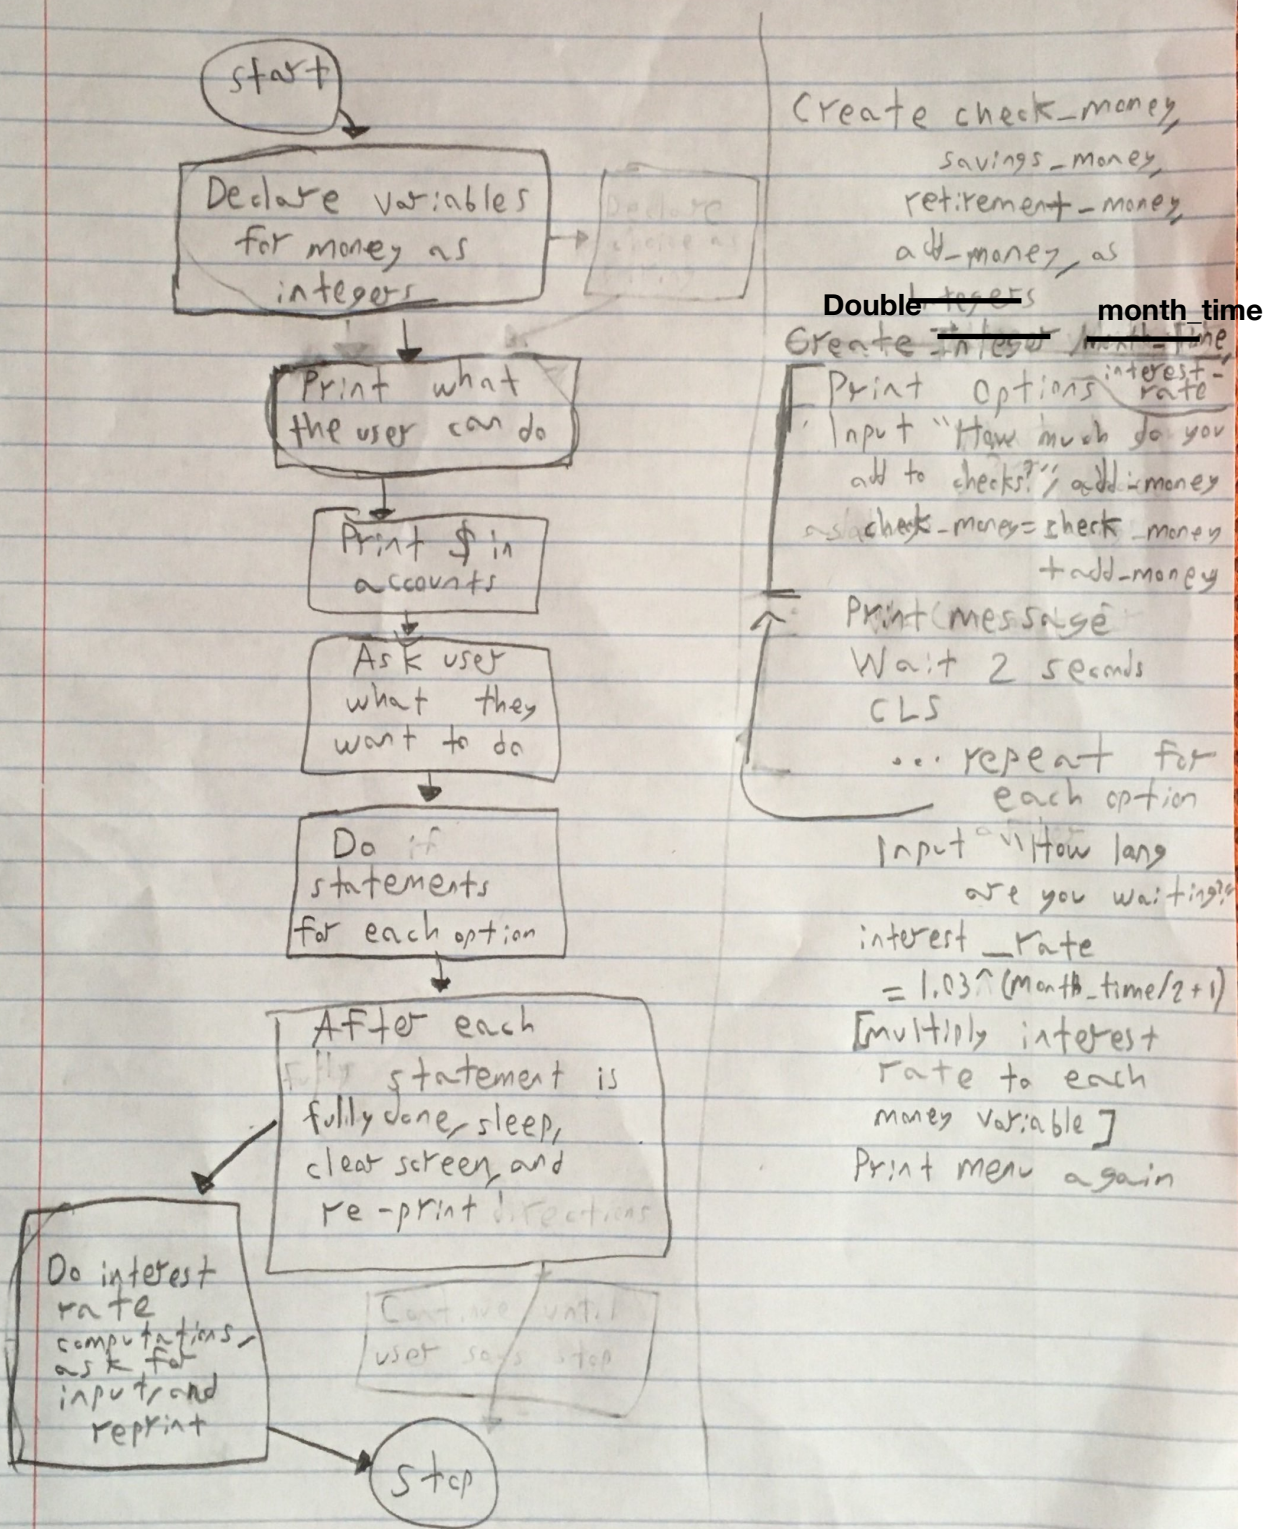 start
Declare variables
for money as
integers
Declare
Print what
the user can do
Print $ in
accounts
Ask user
what they
want to do
Do if
statements
for each option
After each
fully statement is
fully done, sleep,
clear screen, and
re-print directions
Do interest
rate
computations,
ask for
input, and
reprint
Continue until
user says stop
stop
Create check_money,
savings_money,
retirement_money,
add_money, as
Double integers
month_time
Create Integer Month_Time,
interest_
rate
Print options
Input "How much do you
add to checks?", add_money
check_money = check_money
+ add_money
Print message
Wait 2 seconds
CLS
... repeat for
each option
Input "How long
are you waiting?"
interest_rate
= 1.03^(month_time/2+1)
[multiply interest
rate to each
money variable]
Print menu again